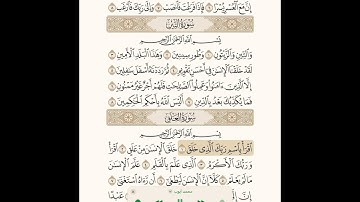 إِنَّ مَعَ ٱلْعُسْرِ يُسْرًا ۝٦ فَإِذَا فَرَغْتَ فَٱنصَبْ ۝٧ وَإِلَىٰ رَبِّكَ فَٱرْغَب ۝٨
سُورَةُ التِّينِ
بِسْمِ ٱللَّهِ ٱلرَّحْمَٰنِ ٱلرَّحِيمِ
وَٱلتِّينِ وَٱلزَّيْتُونِ ۝١ وَطُورِ سِينِينَ ۝٢ وَهَٰذَا ٱلْبَلَدِ ٱلْأَمِينِ ۝٣
لَقَدْ خَلَقْنَا ٱلْإِنسَٰنَ فِىٓ أَحْسَنِ تَقْوِيمٍ ۝٤ ثُمَّ رَدَدْنَٰهُ أَسْفَلَ سَٰفِلِينَ ۝٥
إِلَّا ٱلَّذِينَ ءَامَنُوا۟ وَعَمِلُوا۟ ٱلصَّٰلِحَٰتِ فَلَهُمْ أَجْرٌ غَيْرُ مَمْنُونٍ ۝٦
فَمَا يُكَذِّبُكَ بَعْدُ بِٱلدِّينِ ۝٧ أَلَيْسَ ٱللَّهُ بِأَحْكَمِ ٱلْحَٰكِمِينَ ۝٨
سُورَةُ العَلَقِ
بِسْمِ ٱللَّهِ ٱلرَّحْمَٰنِ ٱلرَّحِيمِ
ٱقْرَأْ بِٱسْمِ رَبِّكَ ٱلَّذِى خَلَقَ ۝١ خَلَقَ ٱلْإِنسَٰنَ مِنْ عَلَقٍ ۝٢ ٱقْرَأْ
وَرَبُّكَ ٱلْأَكْرَمُ ۝٣ ٱلَّذِى عَلَّمَ بِٱلْقَلَمِ ۝٤ عَلَّمَ ٱلْإِنسَٰنَ
مَا لَمْ يَعْلَمْ ۝٥ كَلَّآ إِنَّ ٱلْإِنسَٰنَ لَيَطْغَىٰٓ ۝٦ أَن رَّءَاهُ ٱسْتَغْنَىٰٓ ۝٧
إِنَّ إِلَىٰ
عَبْدًا